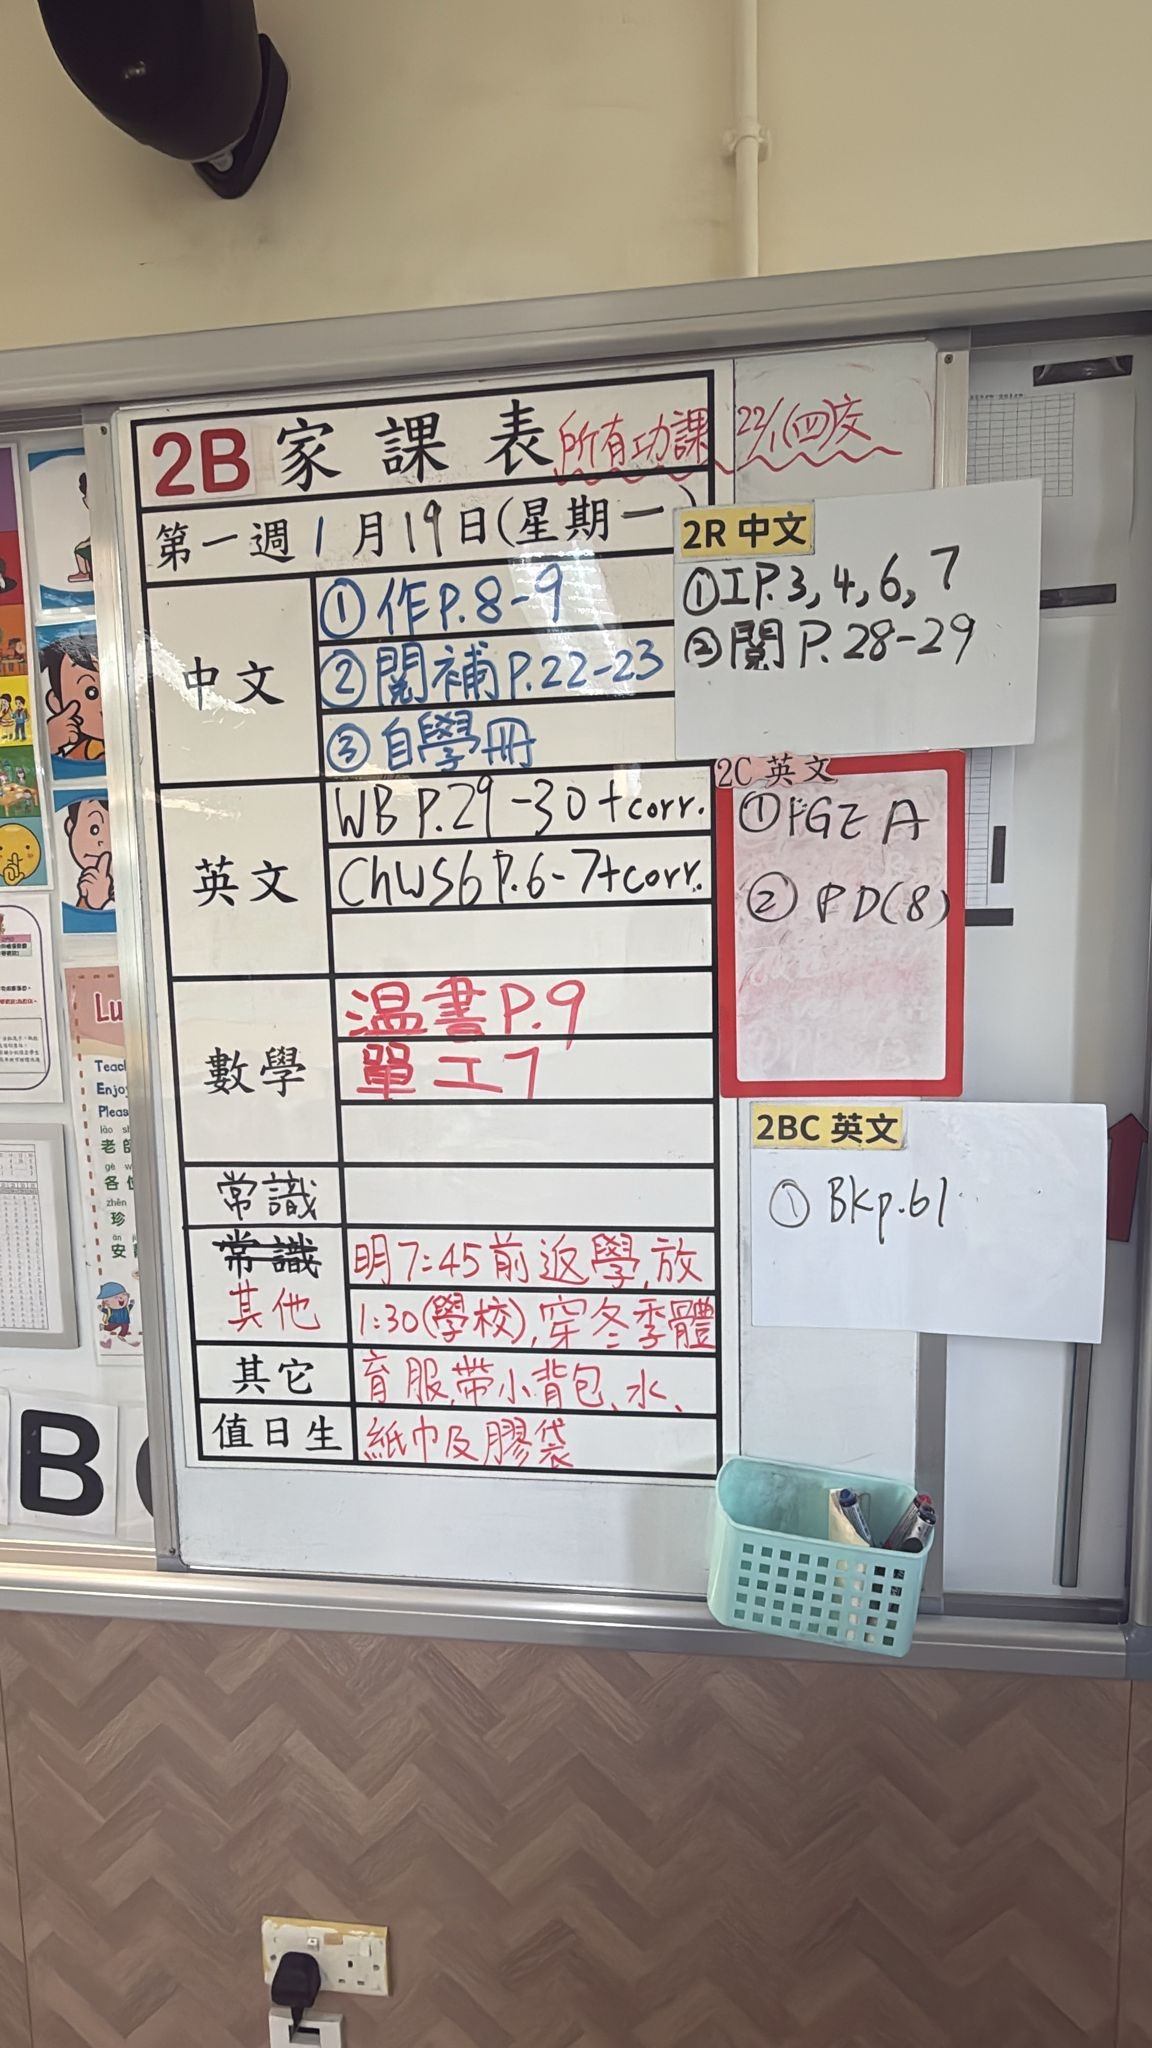 2B 家課表 所有功課 22/1(四)交
第一週 1月19日(星期一)
中文
①作P.8-9
②閱補P.22-23
③自學冊
英文
WB P.29-30+corr.
ChWS6 P.6-7+corr.
數學
温書P.9
單工7
常識
常識
其他
明7:45前返學,放
1:30(學校),穿冬季體
其它
育服,帶小背包、水、
值日生
紙巾及膠袋
2R 中文
①工P.3,4,6,7
②閱P.28-29
2C 英文
①PGE A
② PD(8)
2BC 英文
① BKp.61
Lu
Teac
Enjo
Pleas
lǎo sh
老師
gè w
各位
zhēn
珍
ān
安
B